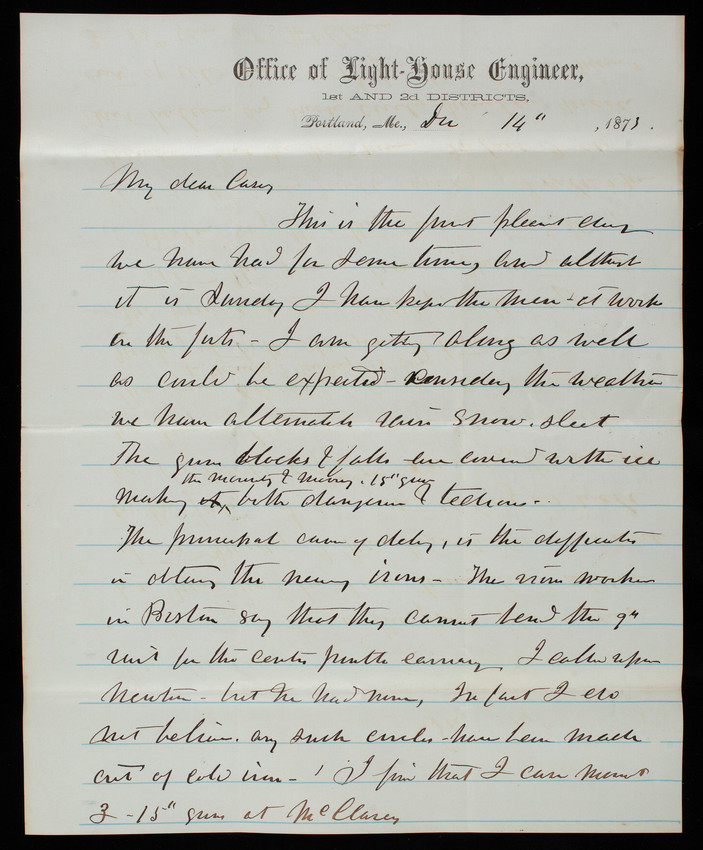 Office of Light-House Engineer,
1st AND 2d DISTRICTS,
Portland, Me., Dec 14" , 1873.
My dear Casey
This is the first pleasant day
we have had for some time, and altho
it is Sunday I have kept the men at work
on the forts - I am getting along as well
as could be expected - considering the weather
we have alternate rain snow. sleet
The guns blocks & falls are covered with ice
the mounting & moving. 15" guns
making it, both dangerous & tedious -
The principal cause of delay, is the difficulties
in obtaining the necessary irons - The iron workers
in Boston say that they cannot bend the 9"
for the centre pintle carriage. I called upon
Newton - but he had none, In fact I do
not believe. any such circles have been made
out of cold iron - ! I find that I can mount
3 - 15" guns at McClary